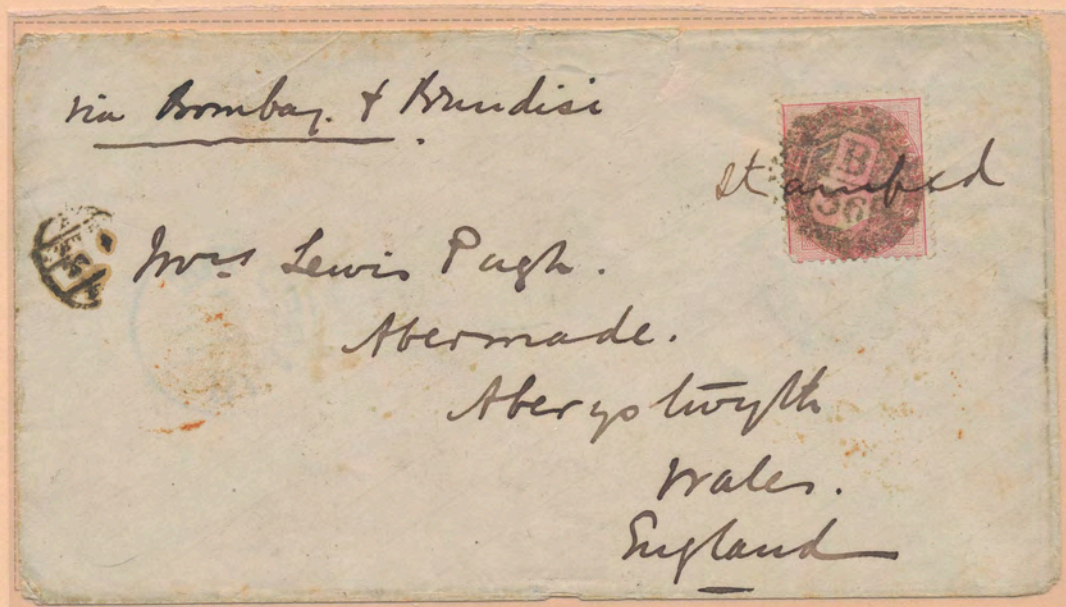 via Bombay. & Brindisi
stamped
B
Mrs Lewis Pugh.
Abermade.
Aberystwyth
Wales.
England